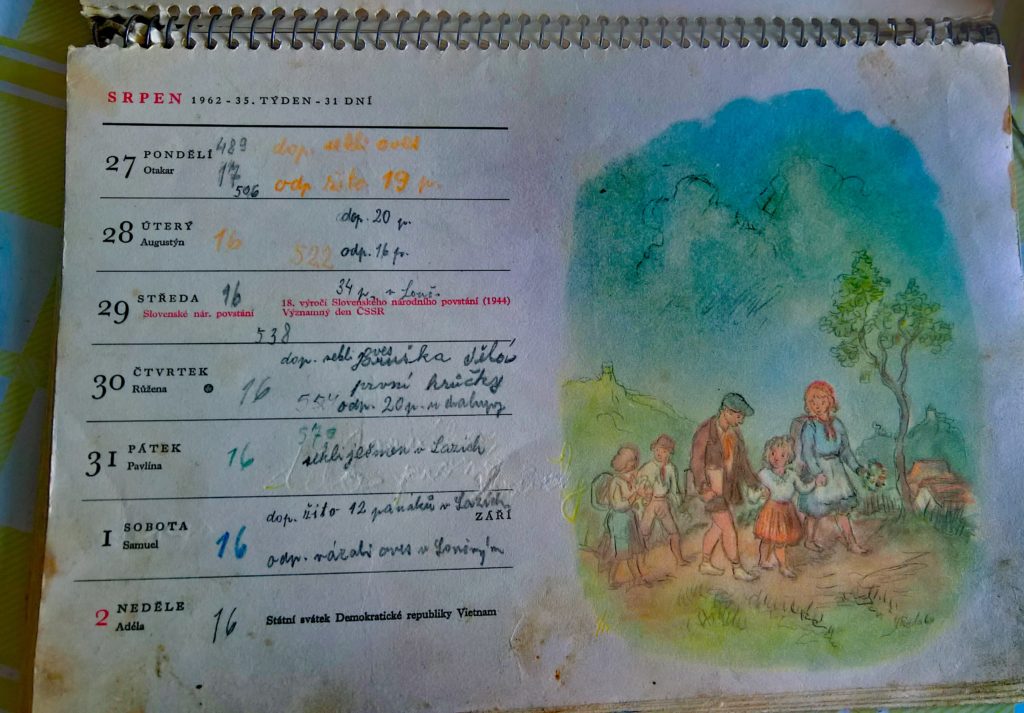 SRPEN 1962 - 35. TÝDEN - 31 DNÍ
27 PONDĚLÍ 489 dop. sekli oves
Otakar 17 506 odp. žito 19 p.
28 ÚTERÝ dop. 20 p.
Augustýn 16 522 odp. 16 p.
34 p. v
29 STŘEDA 16 18. výročí Slovenského národního povstání (1944)
Slovenské nár. povstání Významný den ČSSR
538
30 ČTVRTEK dop. sekli oves
Růžena 16 první hrůčky
554 odp. 20 p. u chalupy
570
31 PÁTEK 16 sekli ječmen v Lazích
Pavlína
dop. žito 12 panáků v Lazích
ZÁŘÍ
1 SOBOTA 16
Samuel odp. vázali oves v
2 NEDĚLE 16 Státní svátek Demokratické republiky Vietnam
Adéla